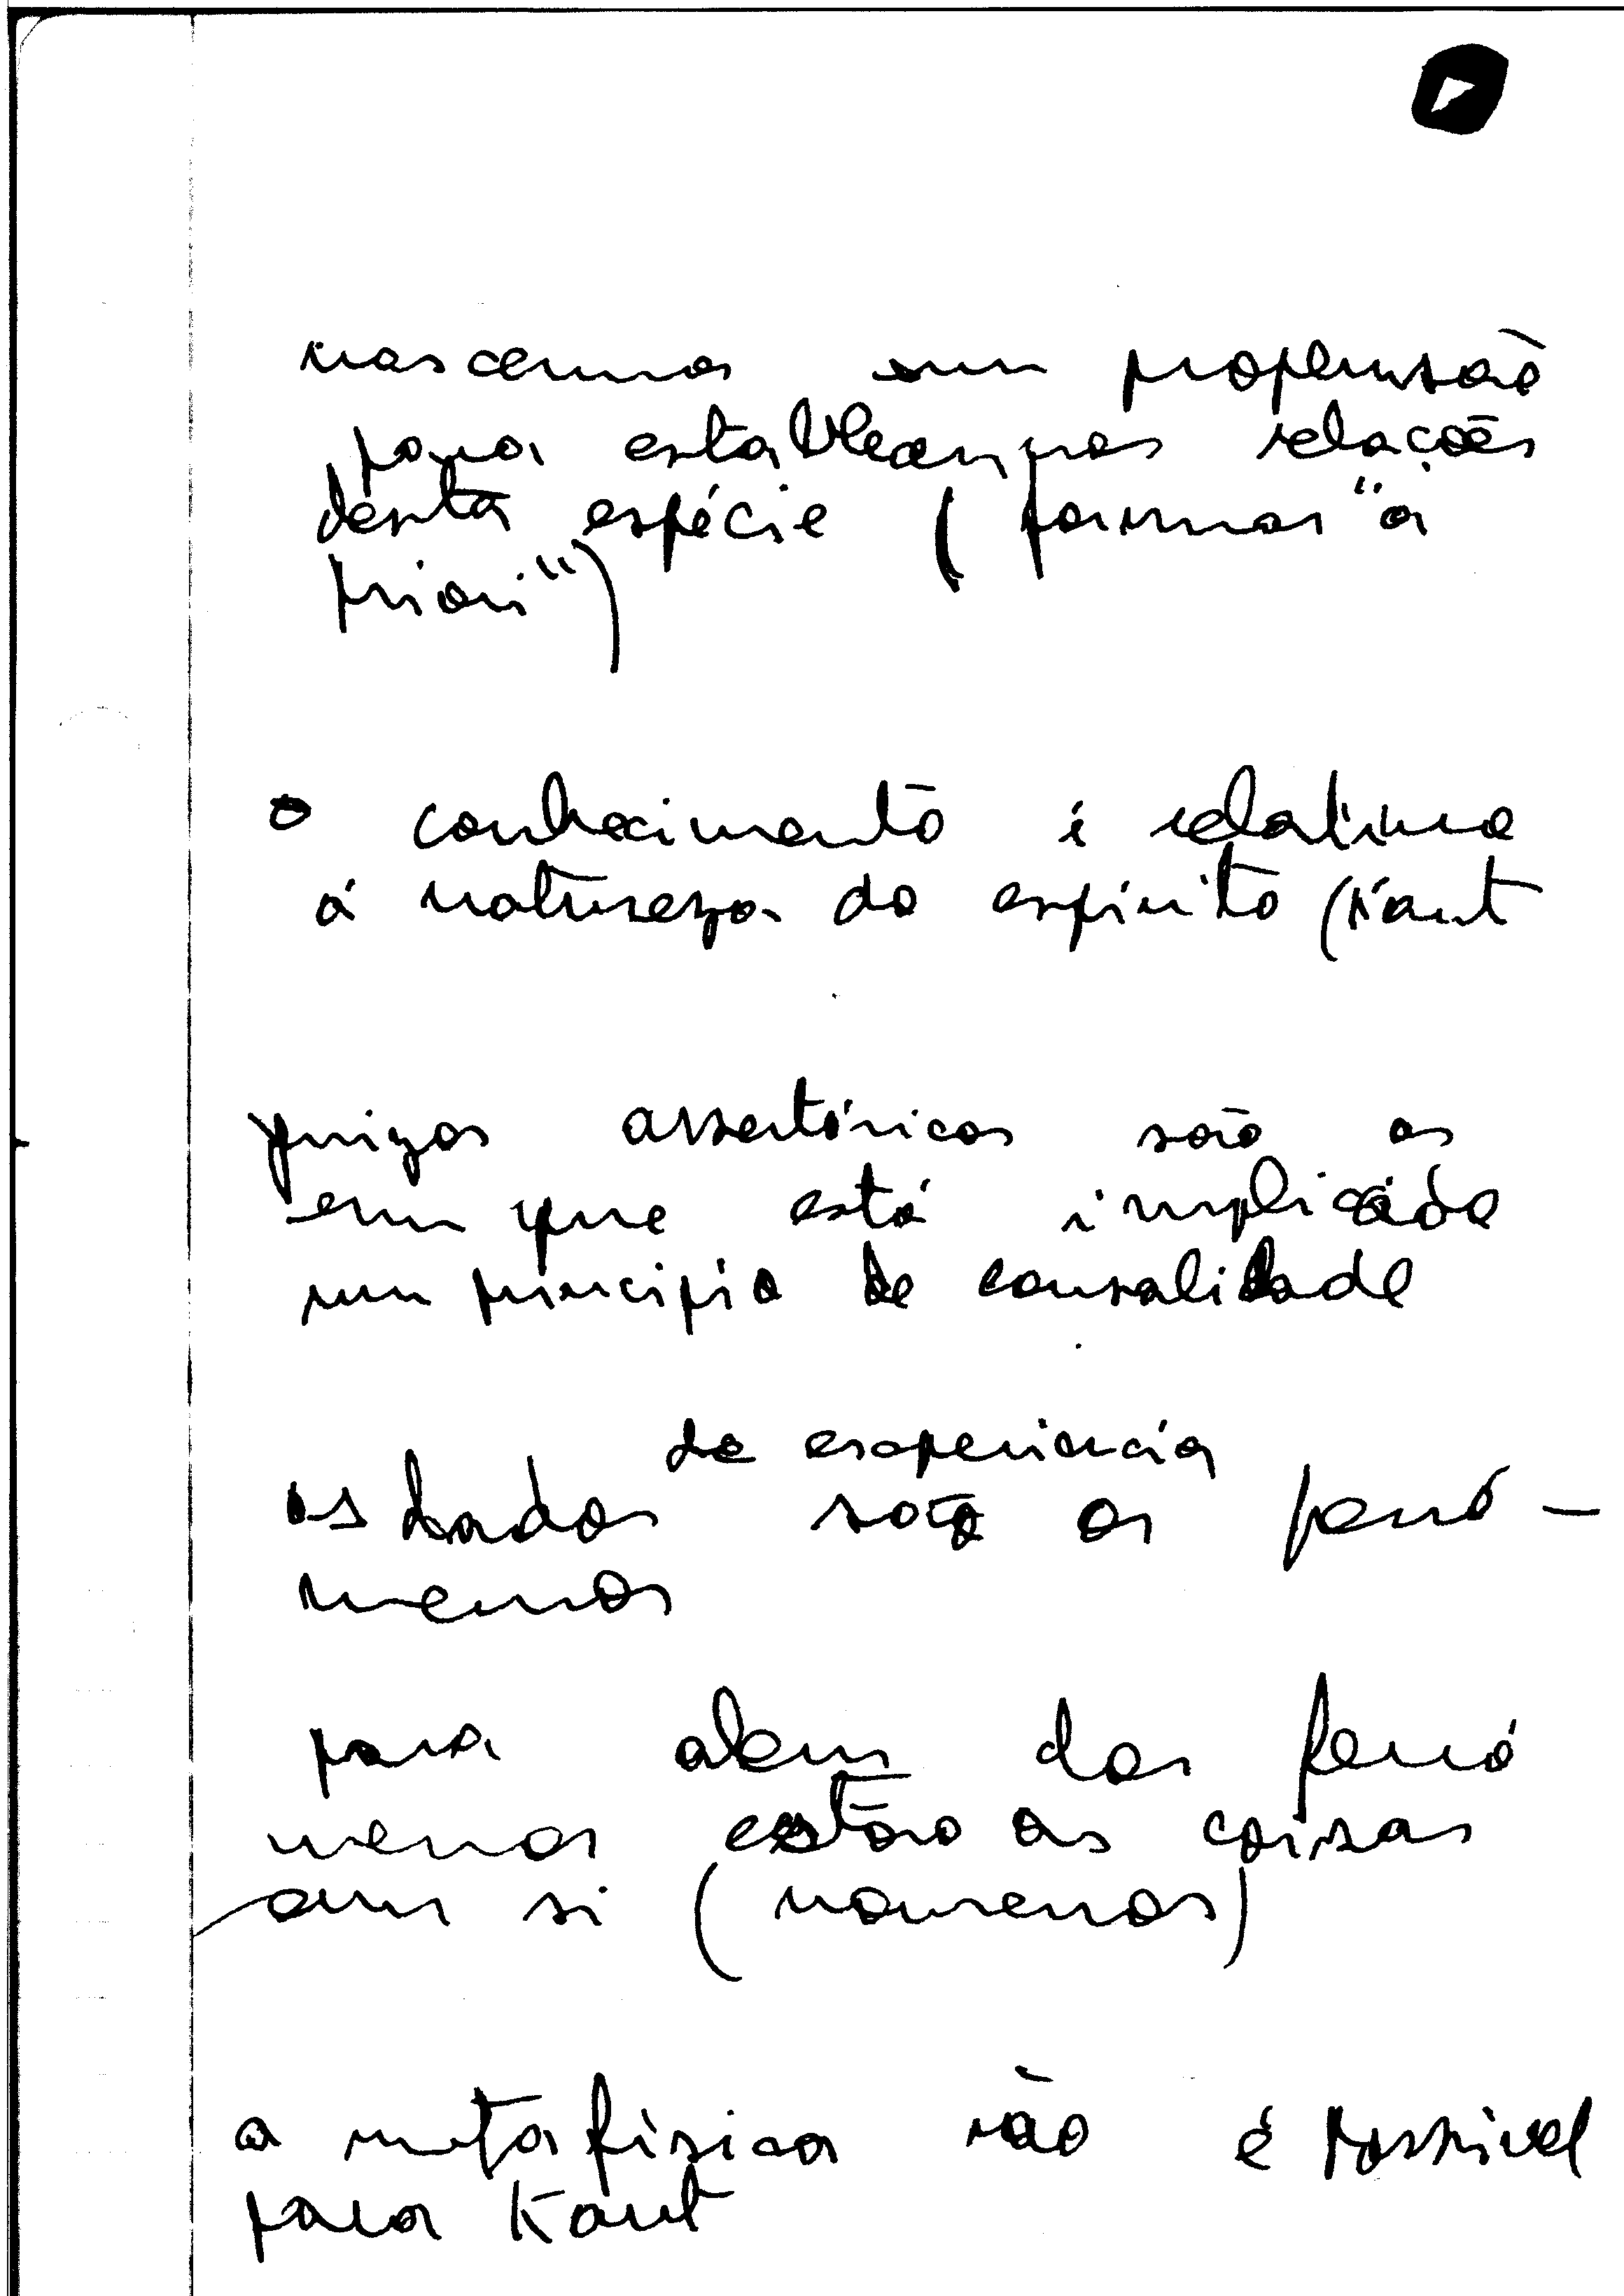 nascemos com propensão
para estabelecermos relações
desta espécie (formas "a
priori")
o conhecimento é relativo
á natureza do espírito (Kant
juizos assertóricos são os
em que está implicado
um principio de causalidade
de experiencia
os dados são os fenó-
menos
para alem dos fenó
menos estão as coisas
em si (noumenos)
a metafísica não é possivel
para Kant